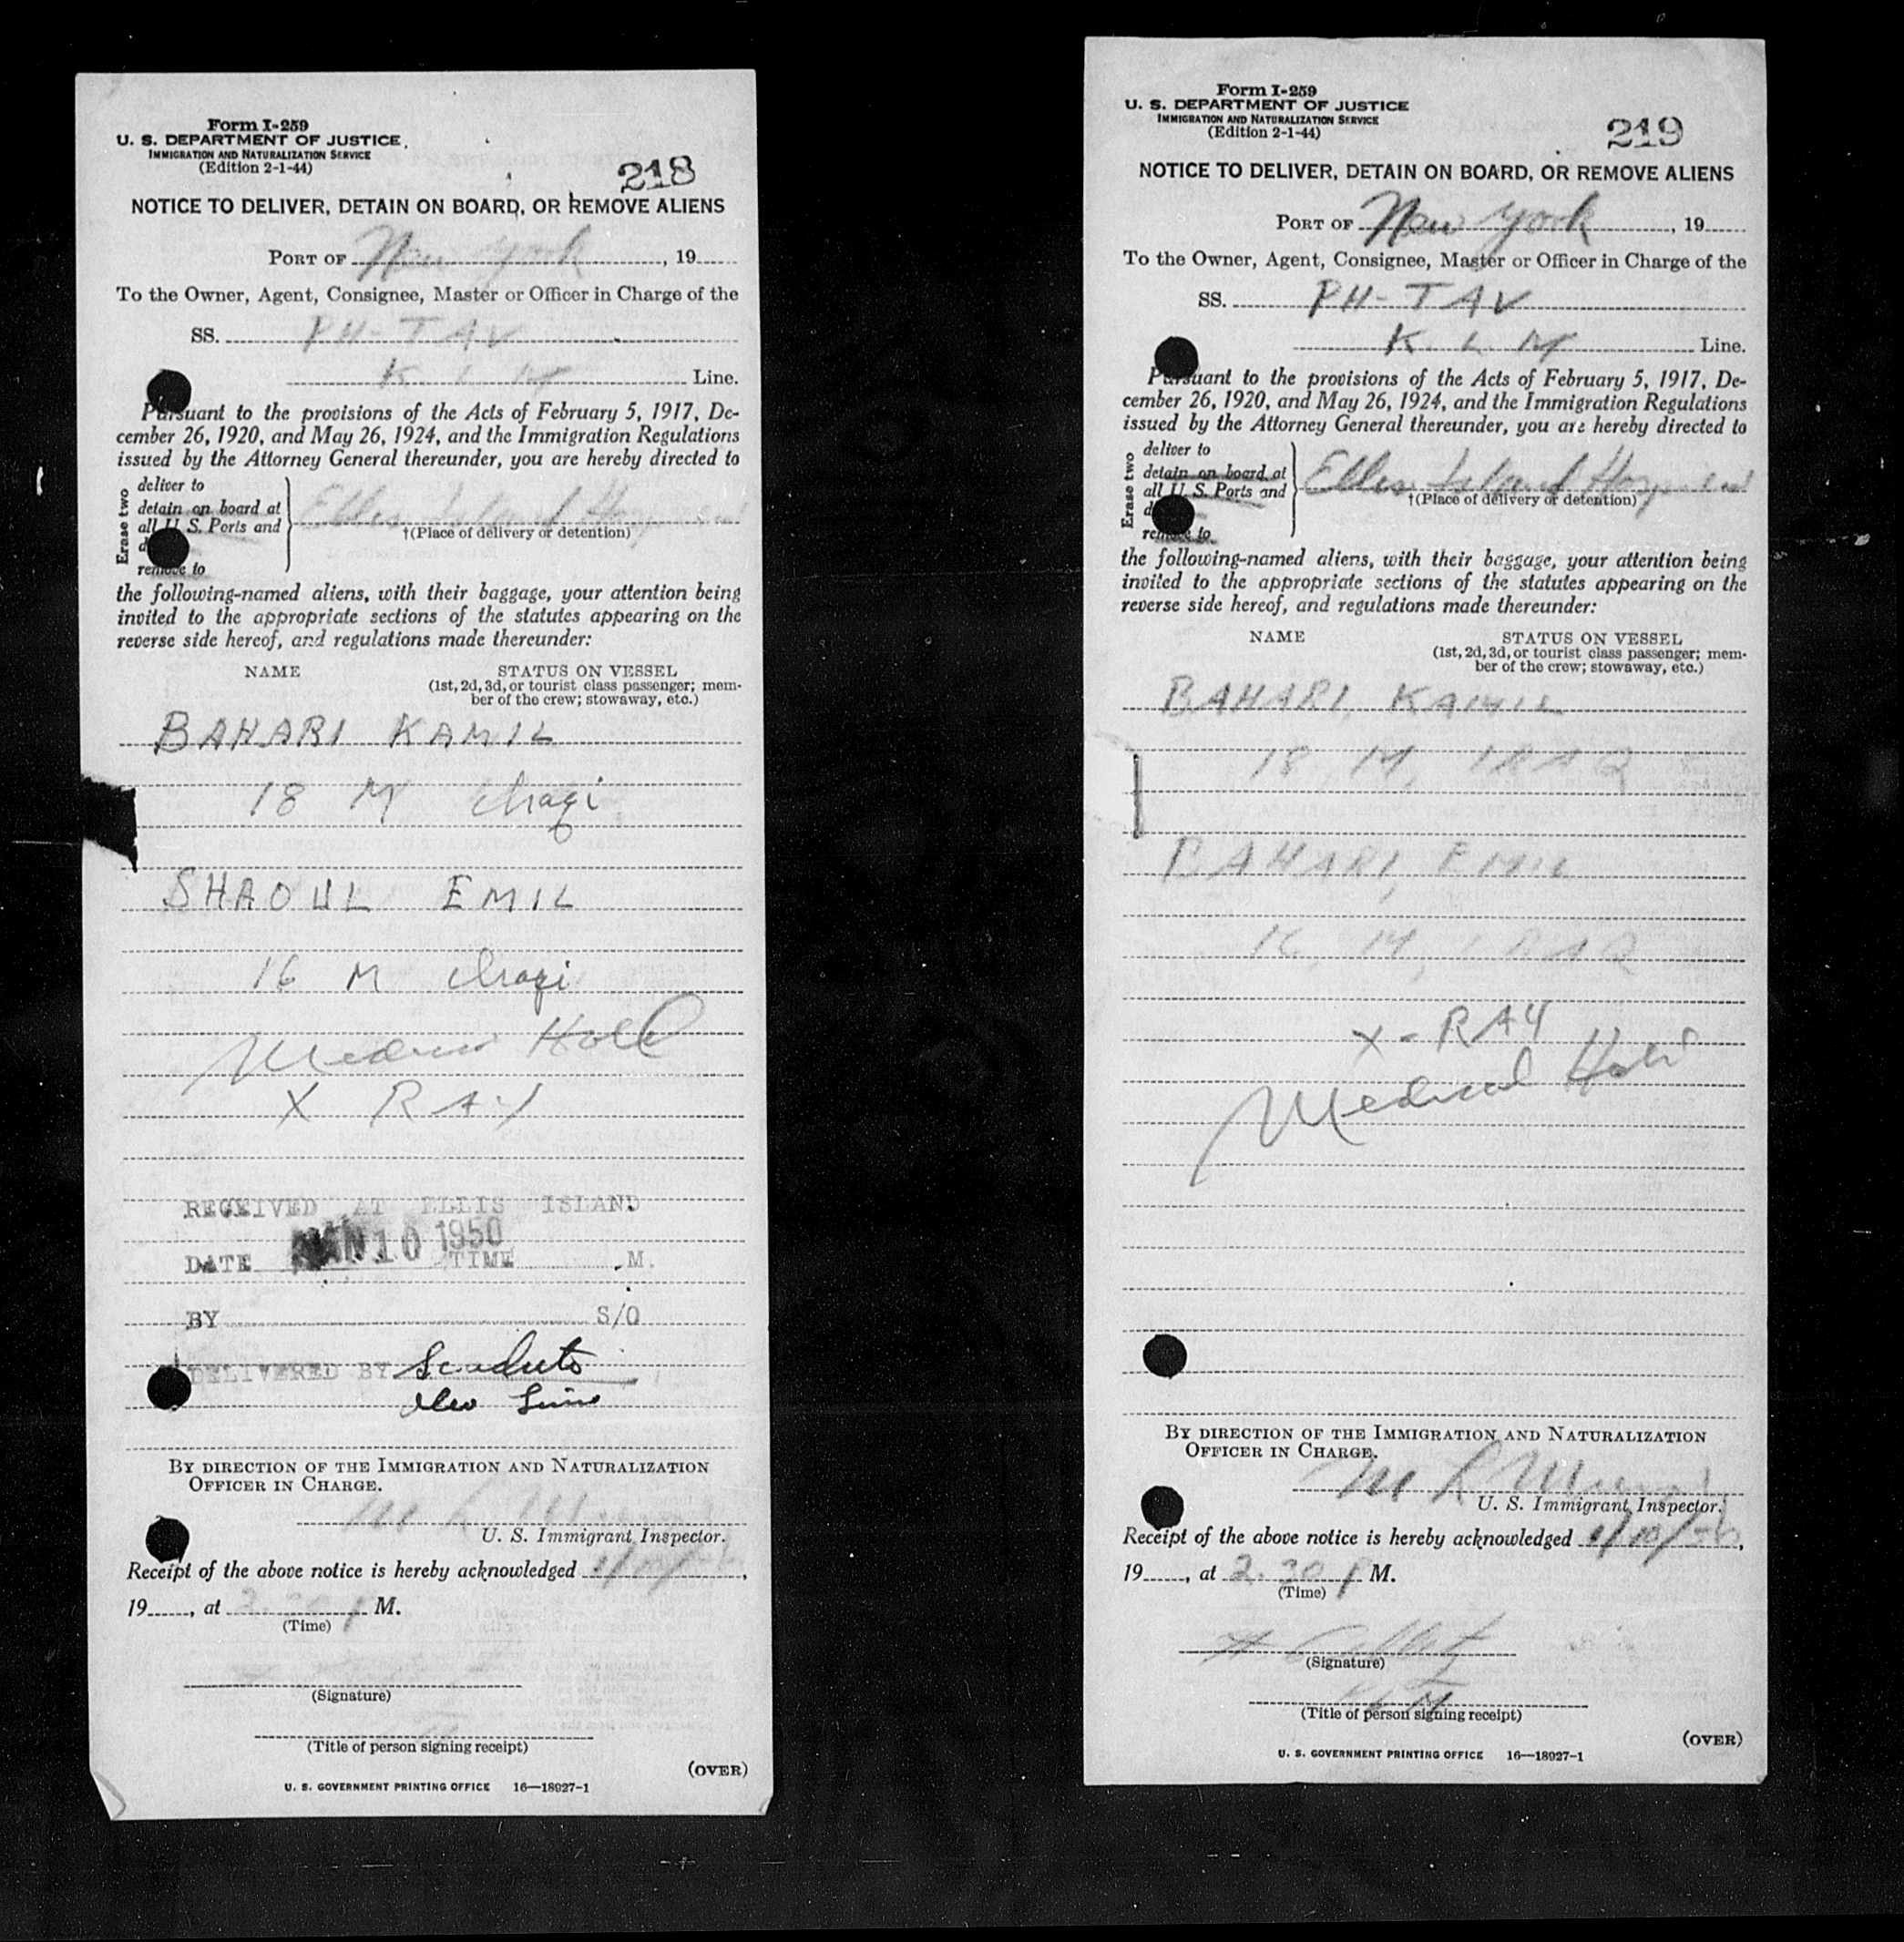 Form I-259
U. S. DEPARTMENT OF JUSTICE
IMMIGRATION AND NATURALIZATION SERVICE
(Edition 2-1-44)
218
NOTICE TO DELIVER, DETAIN ON BOARD, OR REMOVE ALIENS
PORT OF New York, 19
To the Owner, Agent, Consignee, Master or Officer in Charge of the
SS. PH-TAV
K. L M Line.
Pursuant to the provisions of the Acts of February 5, 1917, De-
cember 26, 1920, and May 26, 1924, and the Immigration Regulations
issued by the Attorney General thereunder, you are hereby directed to
Erase two
deliver to
detain on board at
all U. S. Ports and
remove to
Ellis Island
†(Place of delivery or detention)
the following-named aliens, with their baggage, your attention being
invited to the appropriate sections of the statutes appearing on the
reverse side hereof, and regulations made thereunder:
NAME STATUS ON VESSEL
(1st, 2d, 3d, or tourist class passenger; mem-
ber of the crew; stowaway, etc.)
BAHARI KAMIL
18 M Iraqi
SHAOUL EMIL
16 M Iraqi
X RAY
RECEIVED AT ELLIS ISLAND
DATE JAN 10 1950 TIME .M.
BY S/O
DELIVERED BY Scaduto
By direction of the Immigration and Naturalization
Officer in Charge.
U. S. Immigrant Inspector.
Receipt of the above notice is hereby acknowledged
19, at 2.30 P M.
(Time)
(Signature)
(Title of person signing receipt)
(OVER)
U. S. GOVERNMENT PRINTING OFFICE 16—18927-1
Form I-259
U. S. DEPARTMENT OF JUSTICE
IMMIGRATION AND NATURALIZATION SERVICE
(Edition 2-1-44)
219
NOTICE TO DELIVER, DETAIN ON BOARD, OR REMOVE ALIENS
PORT OF New York, 19
To the Owner, Agent, Consignee, Master or Officer in Charge of the
SS. PH-TAV
K. L M Line.
Pursuant to the provisions of the Acts of February 5, 1917, De-
cember 26, 1920, and May 26, 1924, and the Immigration Regulations
issued by the Attorney General thereunder, you are hereby directed to
Erase two
deliver to
detain on board at
all U. S. Ports and
remove to
Ellis Island
†(Place of delivery or detention)
the following-named aliens, with their baggage, your attention being
invited to the appropriate sections of the statutes appearing on the
reverse side hereof, and regulations made thereunder:
NAME STATUS ON VESSEL
(1st, 2d, 3d, or tourist class passenger; mem-
ber of the crew; stowaway, etc.)
BAHARI, KAMIL
18, M, IRAQ
BAHARI, EMIL
16, M, IRAQ
X-RAY
Medical Hold
By direction of the Immigration and Naturalization
Officer in Charge.
U. S. Immigrant Inspector.
Receipt of the above notice is hereby acknowledged 1/10/50,
19, at 2.30 P M.
(Time)
(Signature)
KLM
(Title of person signing receipt)
(OVER)
U. S. GOVERNMENT PRINTING OFFICE 16—18927-1